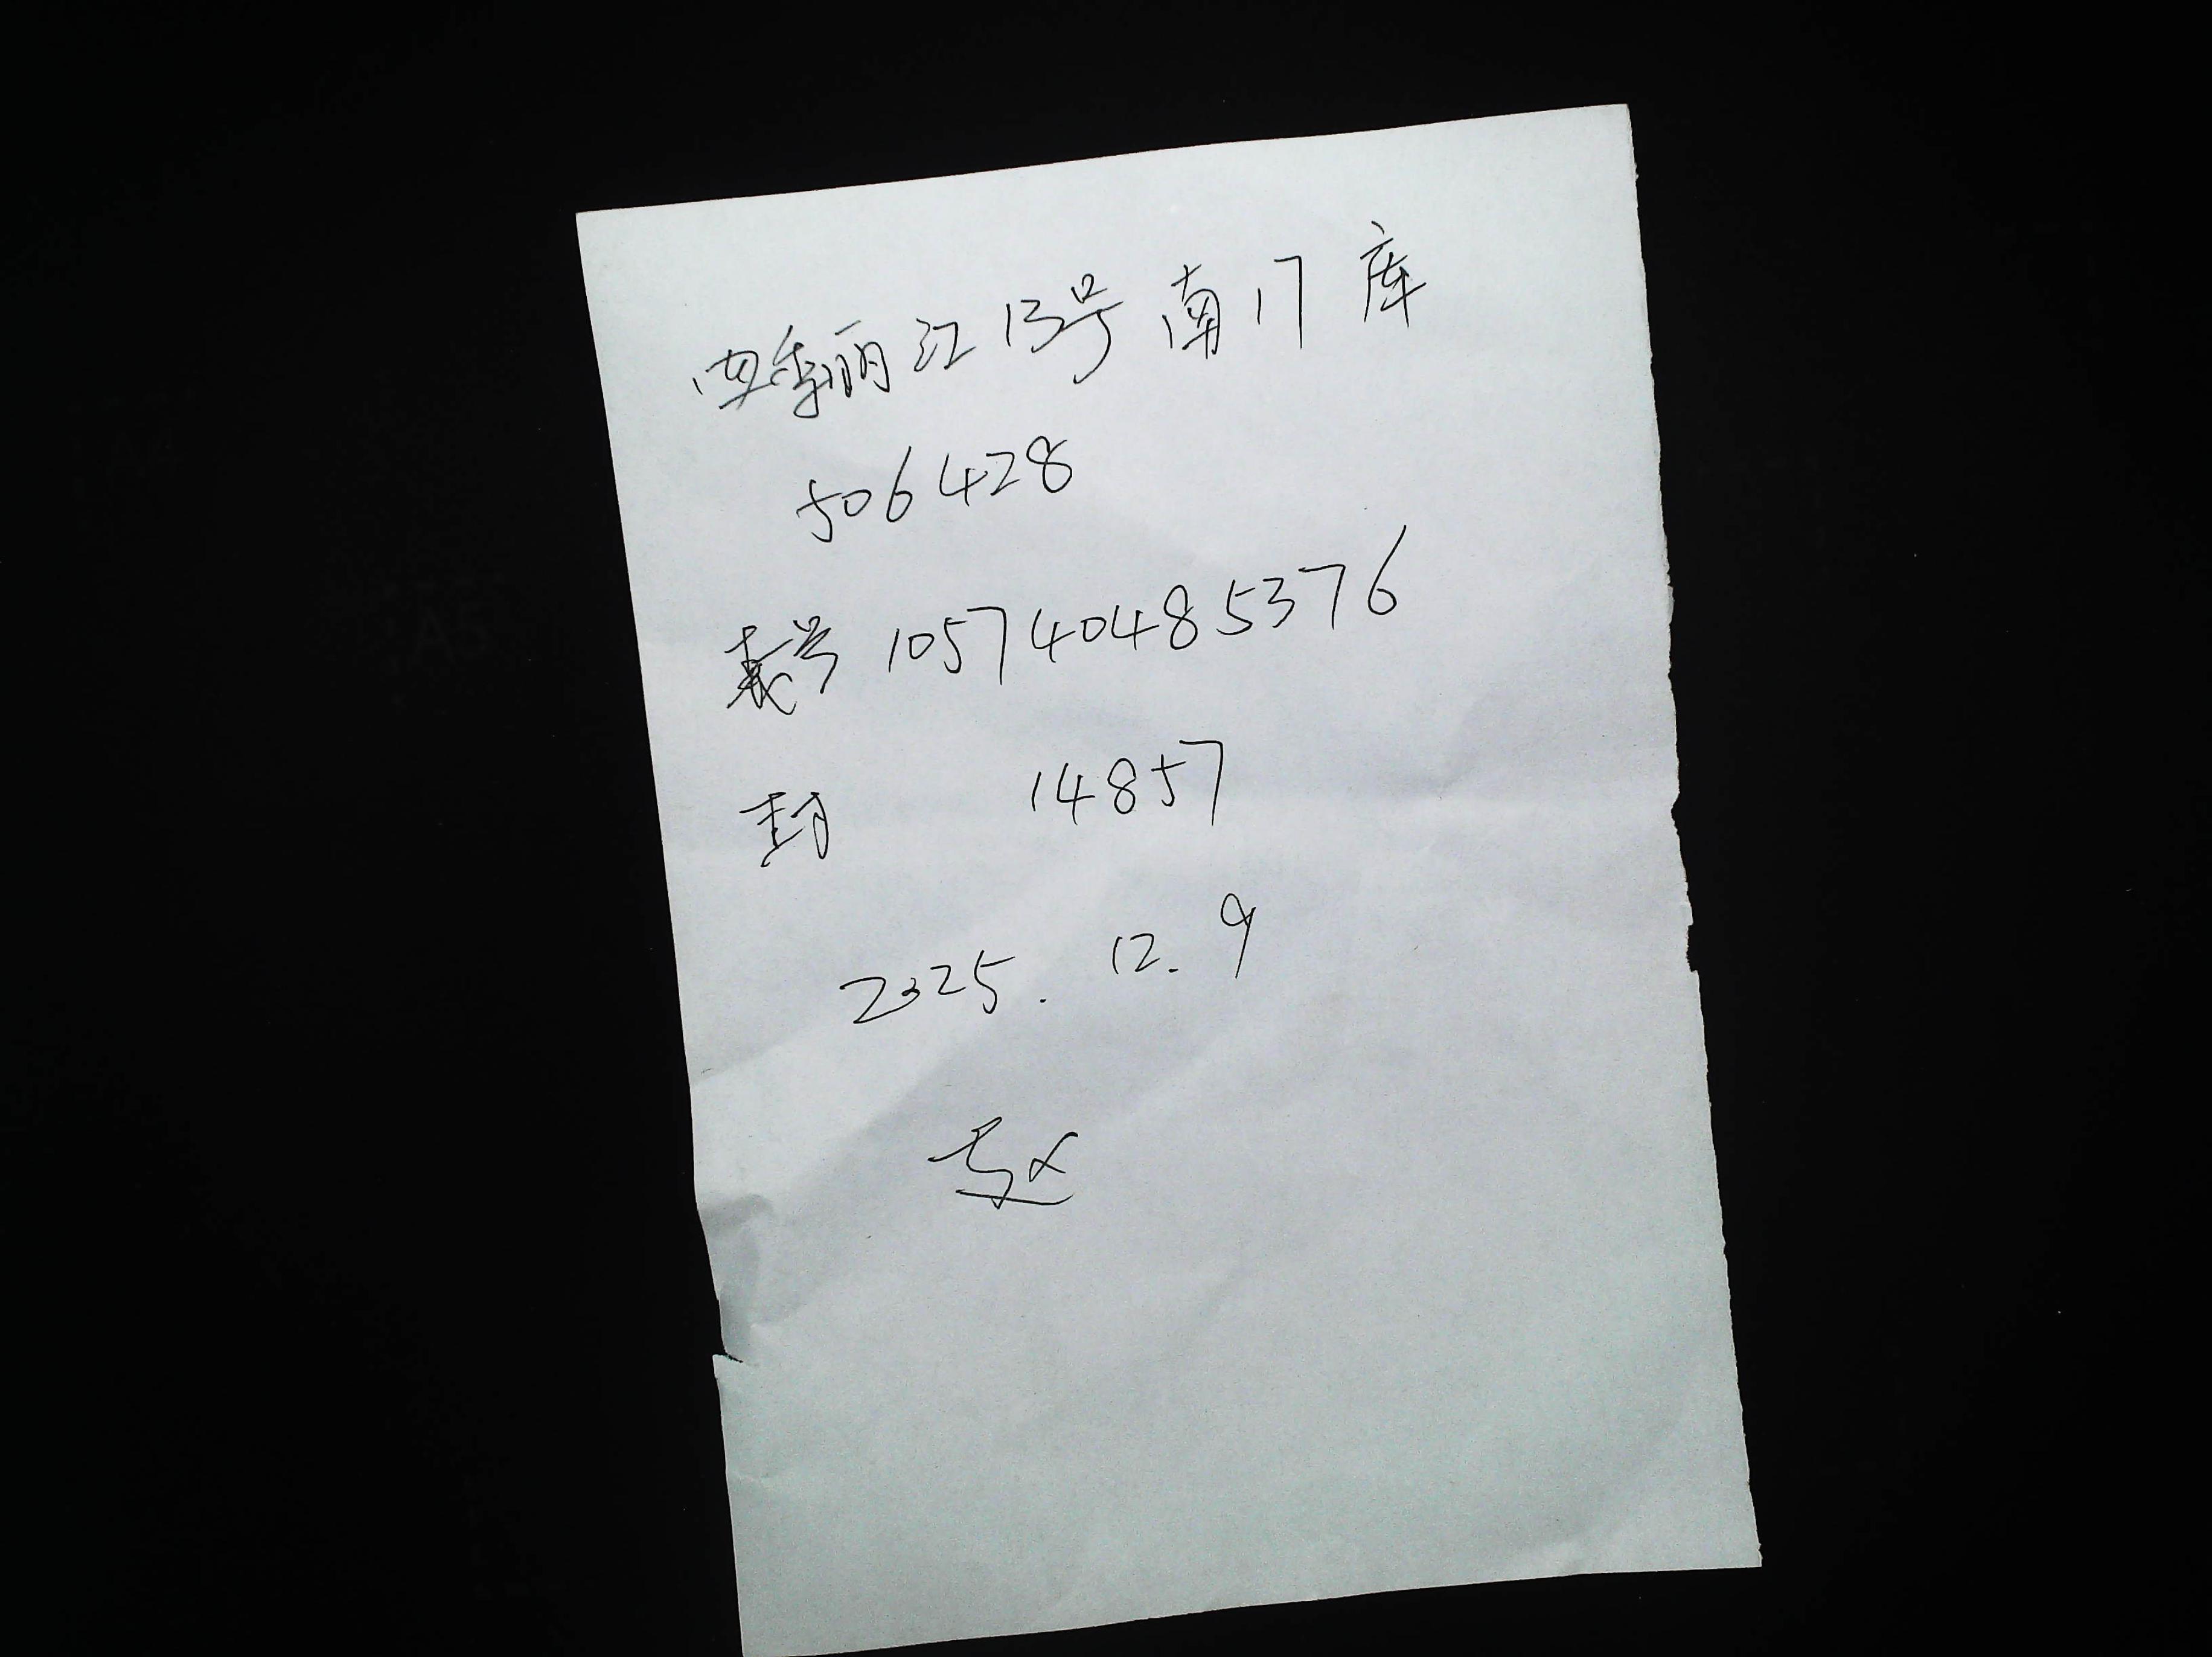 四季丽江13号南17库
506428
表号 105740485376
封 14857
2025. 12. 9
赵